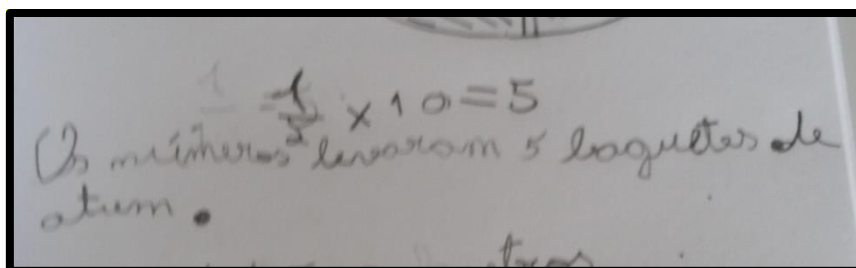 1/2 x 10 = 5
Os números levaram 5 baguetes de
atum.